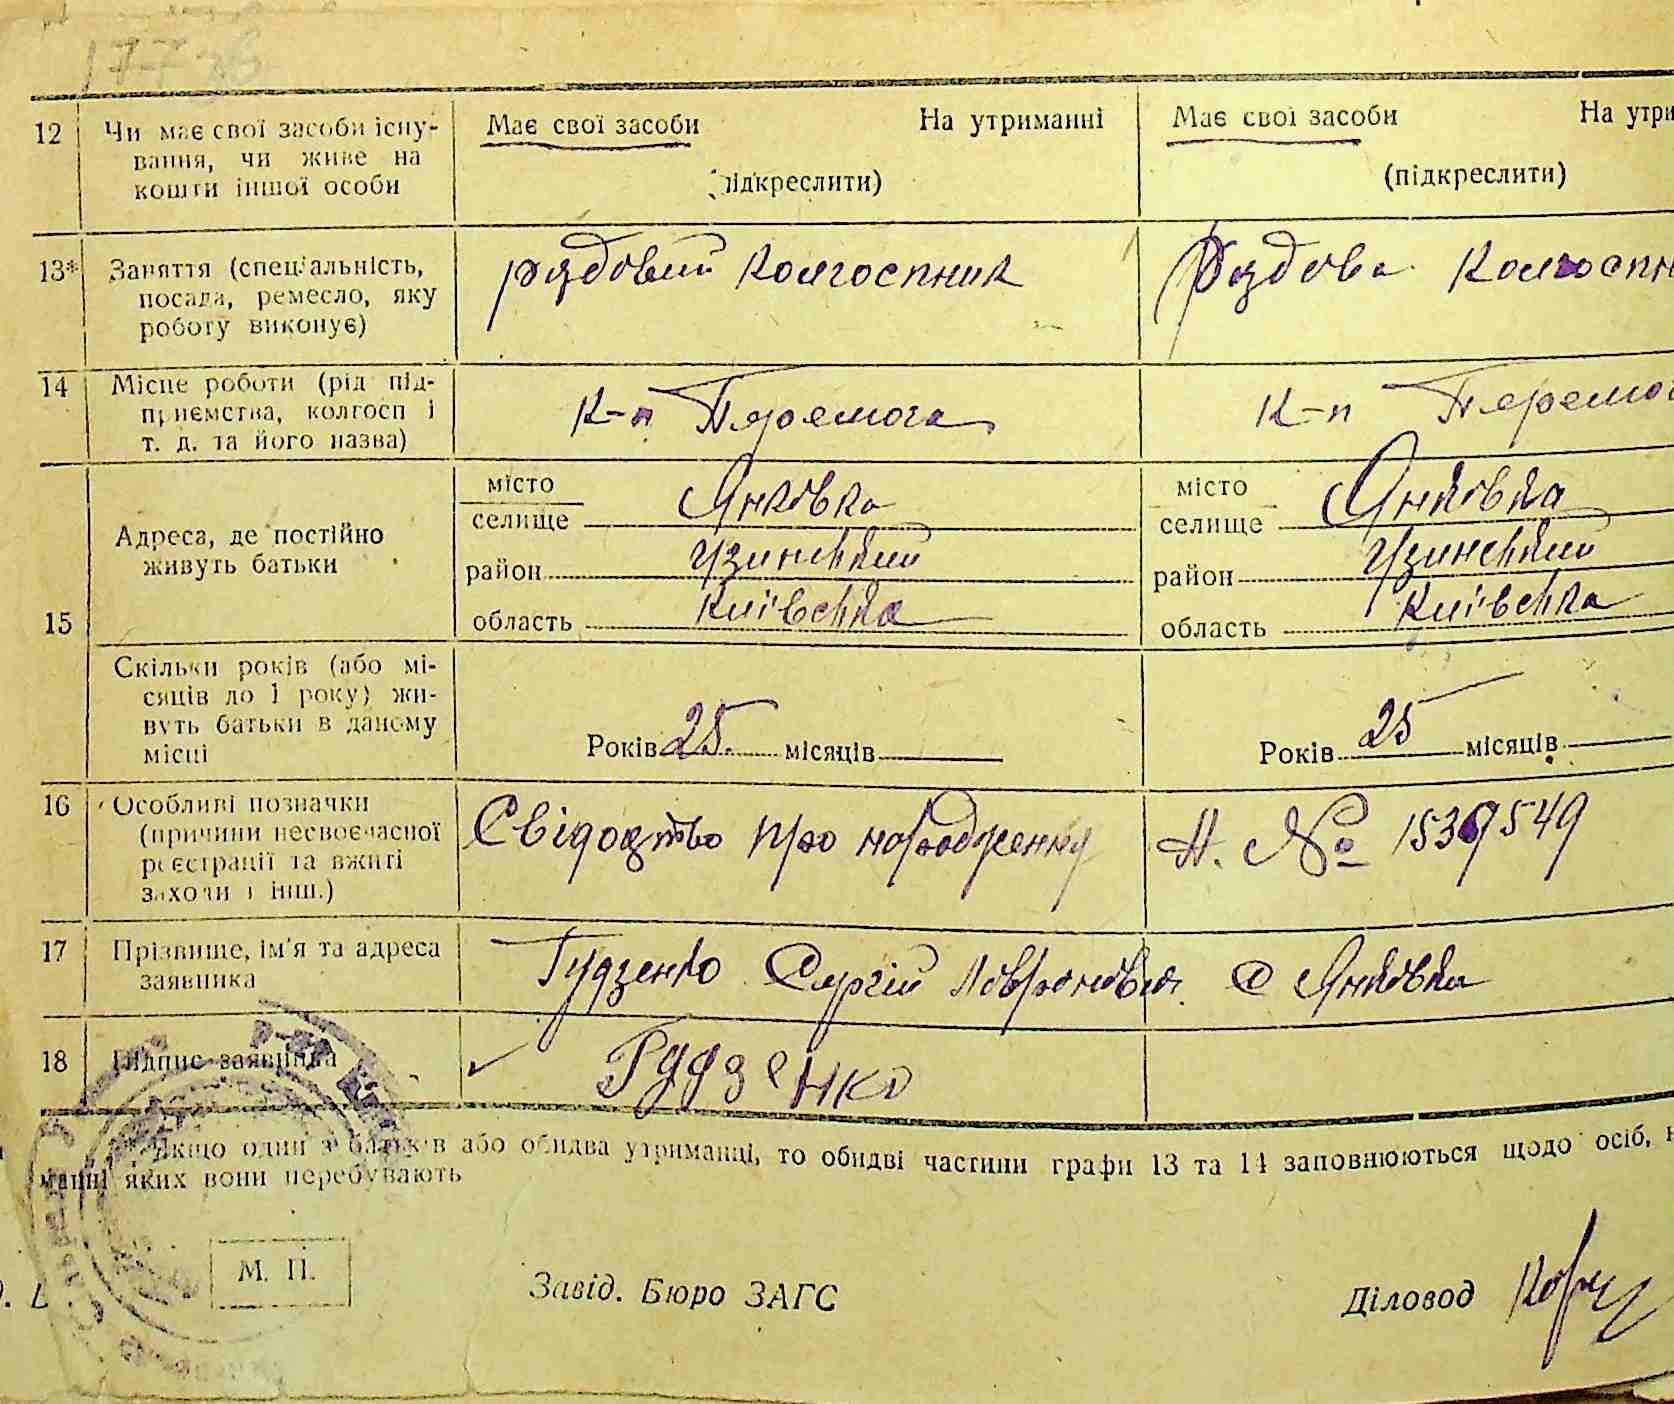 12 Чи має свої засоби існу- Має свої засоби На утриманні Має свої засоби На утри
вання, чи живе на
кошти іншої особи підкреслити) (підкреслити)
13* Заняття (спеціальність, рядовий колгоспник Рядова колгоспн
посада, ремесло, яку
роботу виконує)
14 Місце роботи (рід під- к-п Перемога к-п Перемог
приємства, колгосп і
т. д. та його назва)
15 Адреса, де постійно
живуть батьки
місто Янківка місто Янківка
селище селище
район Узинський район Узинський
область Київська область Київська
Скільки років (або мі-
сяців до 1 року) жи-
вуть батьки в даному
місці
Років 25 місяців Років 25 місяців
16 Особливі позначки Свідоцтво про народження Н. №
(причини несвоєчасної
реєстрації та вжиті
заходи і інш.)
17 Прізвище, ім'я та адреса Гудзенко Сергій с Янківка
заявника
18 Підпис заявника Гудзенко
Якщо один з батьків або обидва утриманці, то обидві частини графи 13 та 14 заповнюються щодо осіб, н
манні яких вони перебувають
М. П. Завід. Бюро ЗАГС Діловод